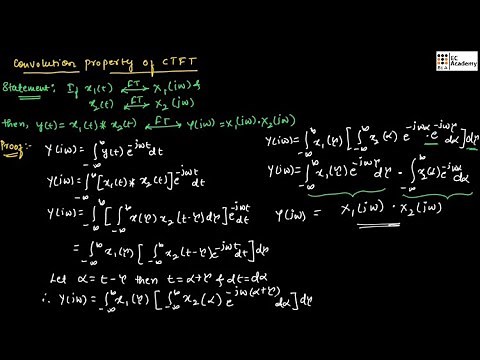 Convolution property of CTFT
EC Academy
Statement:- If x₁(t) ⟷FT X₁(jω) &
x₂(t) ⟷FT X₂(jω)
then, y(t) = x₁(t) * x₂(t) ⟷FT Y(jω) = X₁(jω)·X₂(jω)
Proof:- Y(jω) = ∫_{-∞}^{∞} y(t) e^{-jωt} dt
Y(jω) = ∫_{-∞}^{∞} [x₁(t) * x₂(t)] e^{-jωt} dt
Y(jω) = ∫_{-∞}^{∞} [∫_{-∞}^{∞} x₁(τ) x₂(t-τ) dτ] e^{-jωt} dt
= ∫_{-∞}^{∞} x₁(τ) [∫_{-∞}^{∞} x₂(t-τ) e^{-jωt} dt] dτ
Let α = t-τ then t = α+τ & dt = dα
∴ Y(jω) = ∫_{-∞}^{∞} x₁(τ) [∫_{-∞}^{∞} x₂(α) e^{-jω(α+τ)} dα] dτ
Y(jω) = ∫_{-∞}^{∞} x₁(τ) [∫_{-∞}^{∞} x₂(α) e^{-jωα} · e^{-jωτ} dα] dτ
Y(jω) = ∫_{-∞}^{∞} x₁(τ) e^{-jωτ} dτ · ∫_{-∞}^{∞} x₂(α) e^{-jωα} dα
Y(jω) = X₁(jω) · X₂(jω)